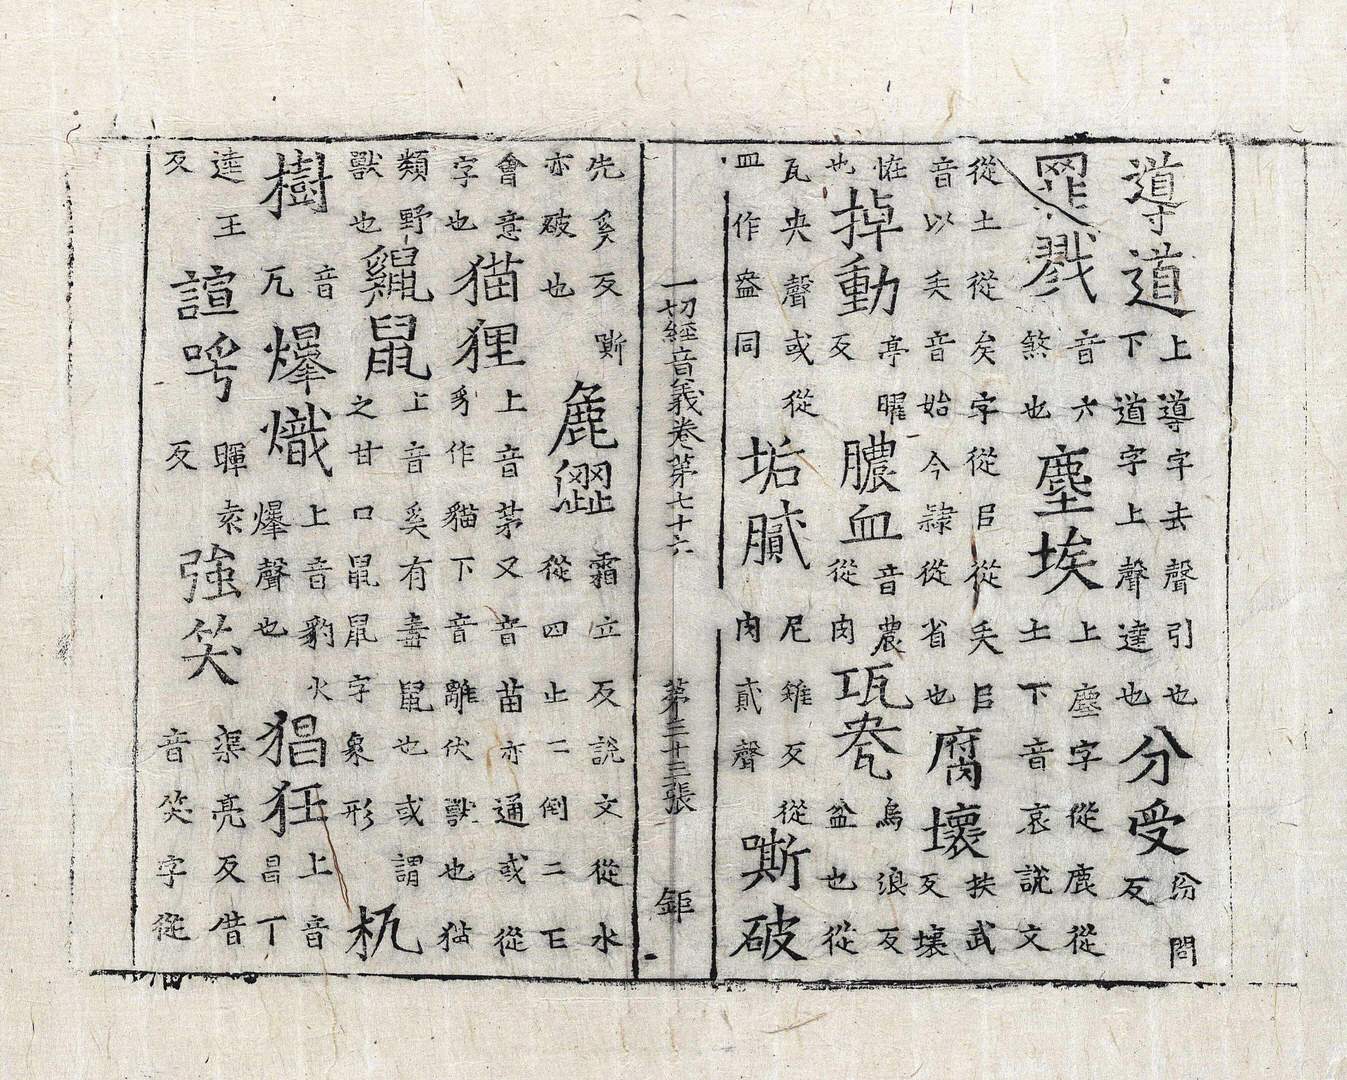 導道上導字去聲引也下道字上聲達也分受分問反
罪戮音六煞也塵埃上塵字從鹿從土下音哀說文
從土從矣字從㠯從矢㠯音以矢音始今隸從省也腐壞扶武反壞
恠也掉動亭曜反膿血音農從肉瓨㼜烏浪反盆也從
瓦央聲或從皿作盎同垢膩尼雉反從肉貳聲嘶破
一切經音義卷第七十六 第三十三張 鉅
先奚反嘶亦破也麁澀霜立反說文從水從四止二倒二正
會意字也猫狸上音茅又音苗亦通或從豸作貓下音離伏獸也猫
類野獸也鼷鼠上音奚有毒鼠也或謂之甘口鼠鼠字象形杌
樹音兀爆熾上音豹火爆聲也猖狂上音昌下
逵王反諠呼暉袁反強笑渠亮反借音笑字從